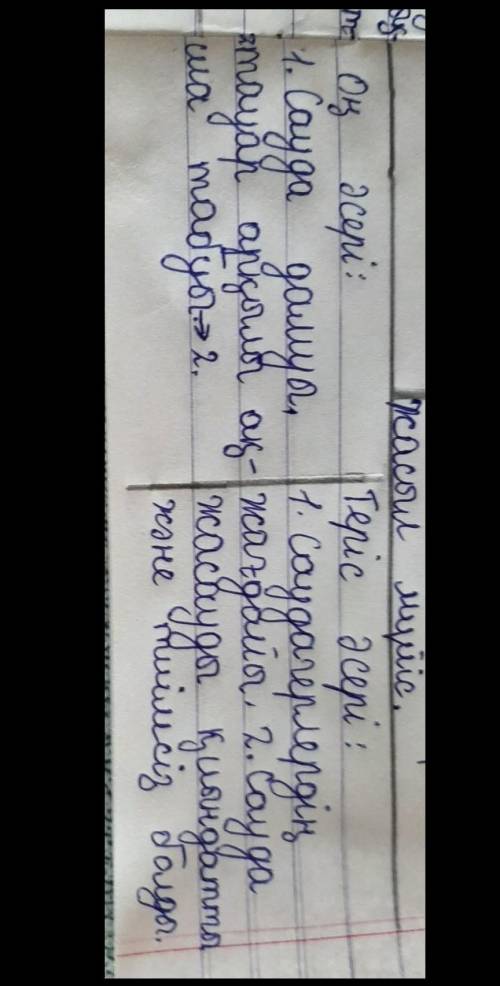 жасыл мүйіс.
Оң әсері:
1. Сауда дамуы,
тауар арқылы ақ-
ша табуы → 2.
Теріс әсері:
1. Саудагерлердің
жағдайы. 2. Сауда
жасауды қиындатты
және тиімсіз болды.